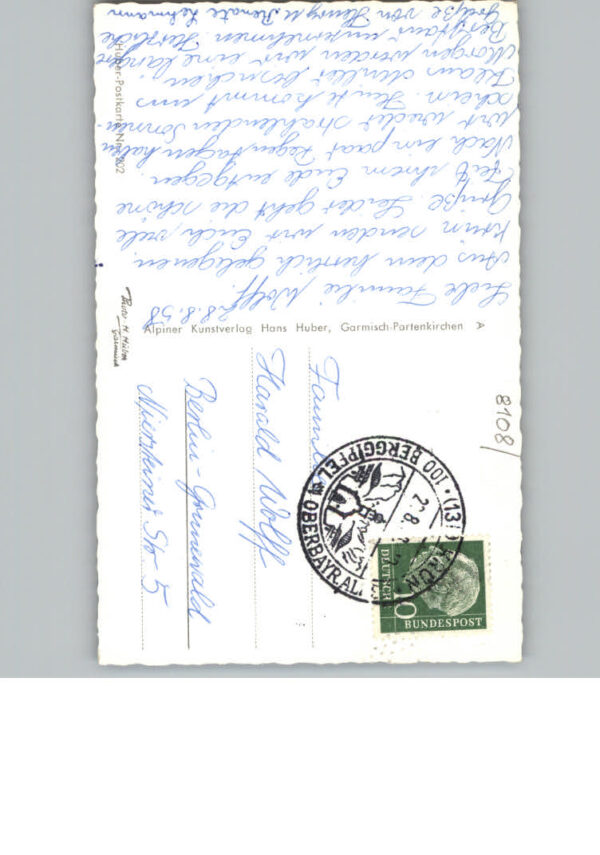 28.8.58
Liebe Familie Wolff.
Aus dem herrlich gelegenen
Krün senden wir Euch viele
Grüße. Leider geht die schöne
Zeit ihrem Ende entgegen.
Nach ein paar Regentagen haben
wir wieder strahlenden Sonnen-
schein. Heute kommt uns
Klaus Menkel besuchen.
Morgen werden wir eine längere
Bergtour unternehmen. Herzliche
Grüße von Henry u Renate Lehmann
Huber-Postkarte Nr. 202
Photo H. Huber
Garmisch
Alpiner Kunstverlag Hans Huber, Garmisch-Partenkirchen A
8108/
Familie
Harald Wolff
Berlin-Grunewald
Str 5
(13b) KRÜN
100 BERGGIPFEL
OBERBAYR. AL
10
DEUTSCHE
BUNDESPOST